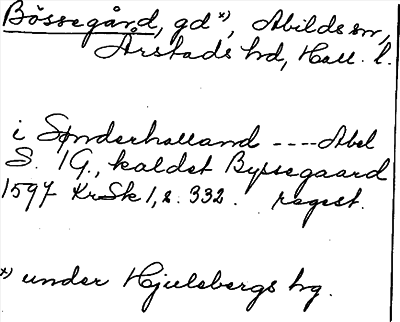 Bössegård, gd *), Abilds sn,
Årstads hd, Hall. l.
i Sønderhalland ---- Abel
S. 1 G., kaldet Byssegaard
1597 KrSk 1, s. 332. regest.
*) under Hjulebergs hg.